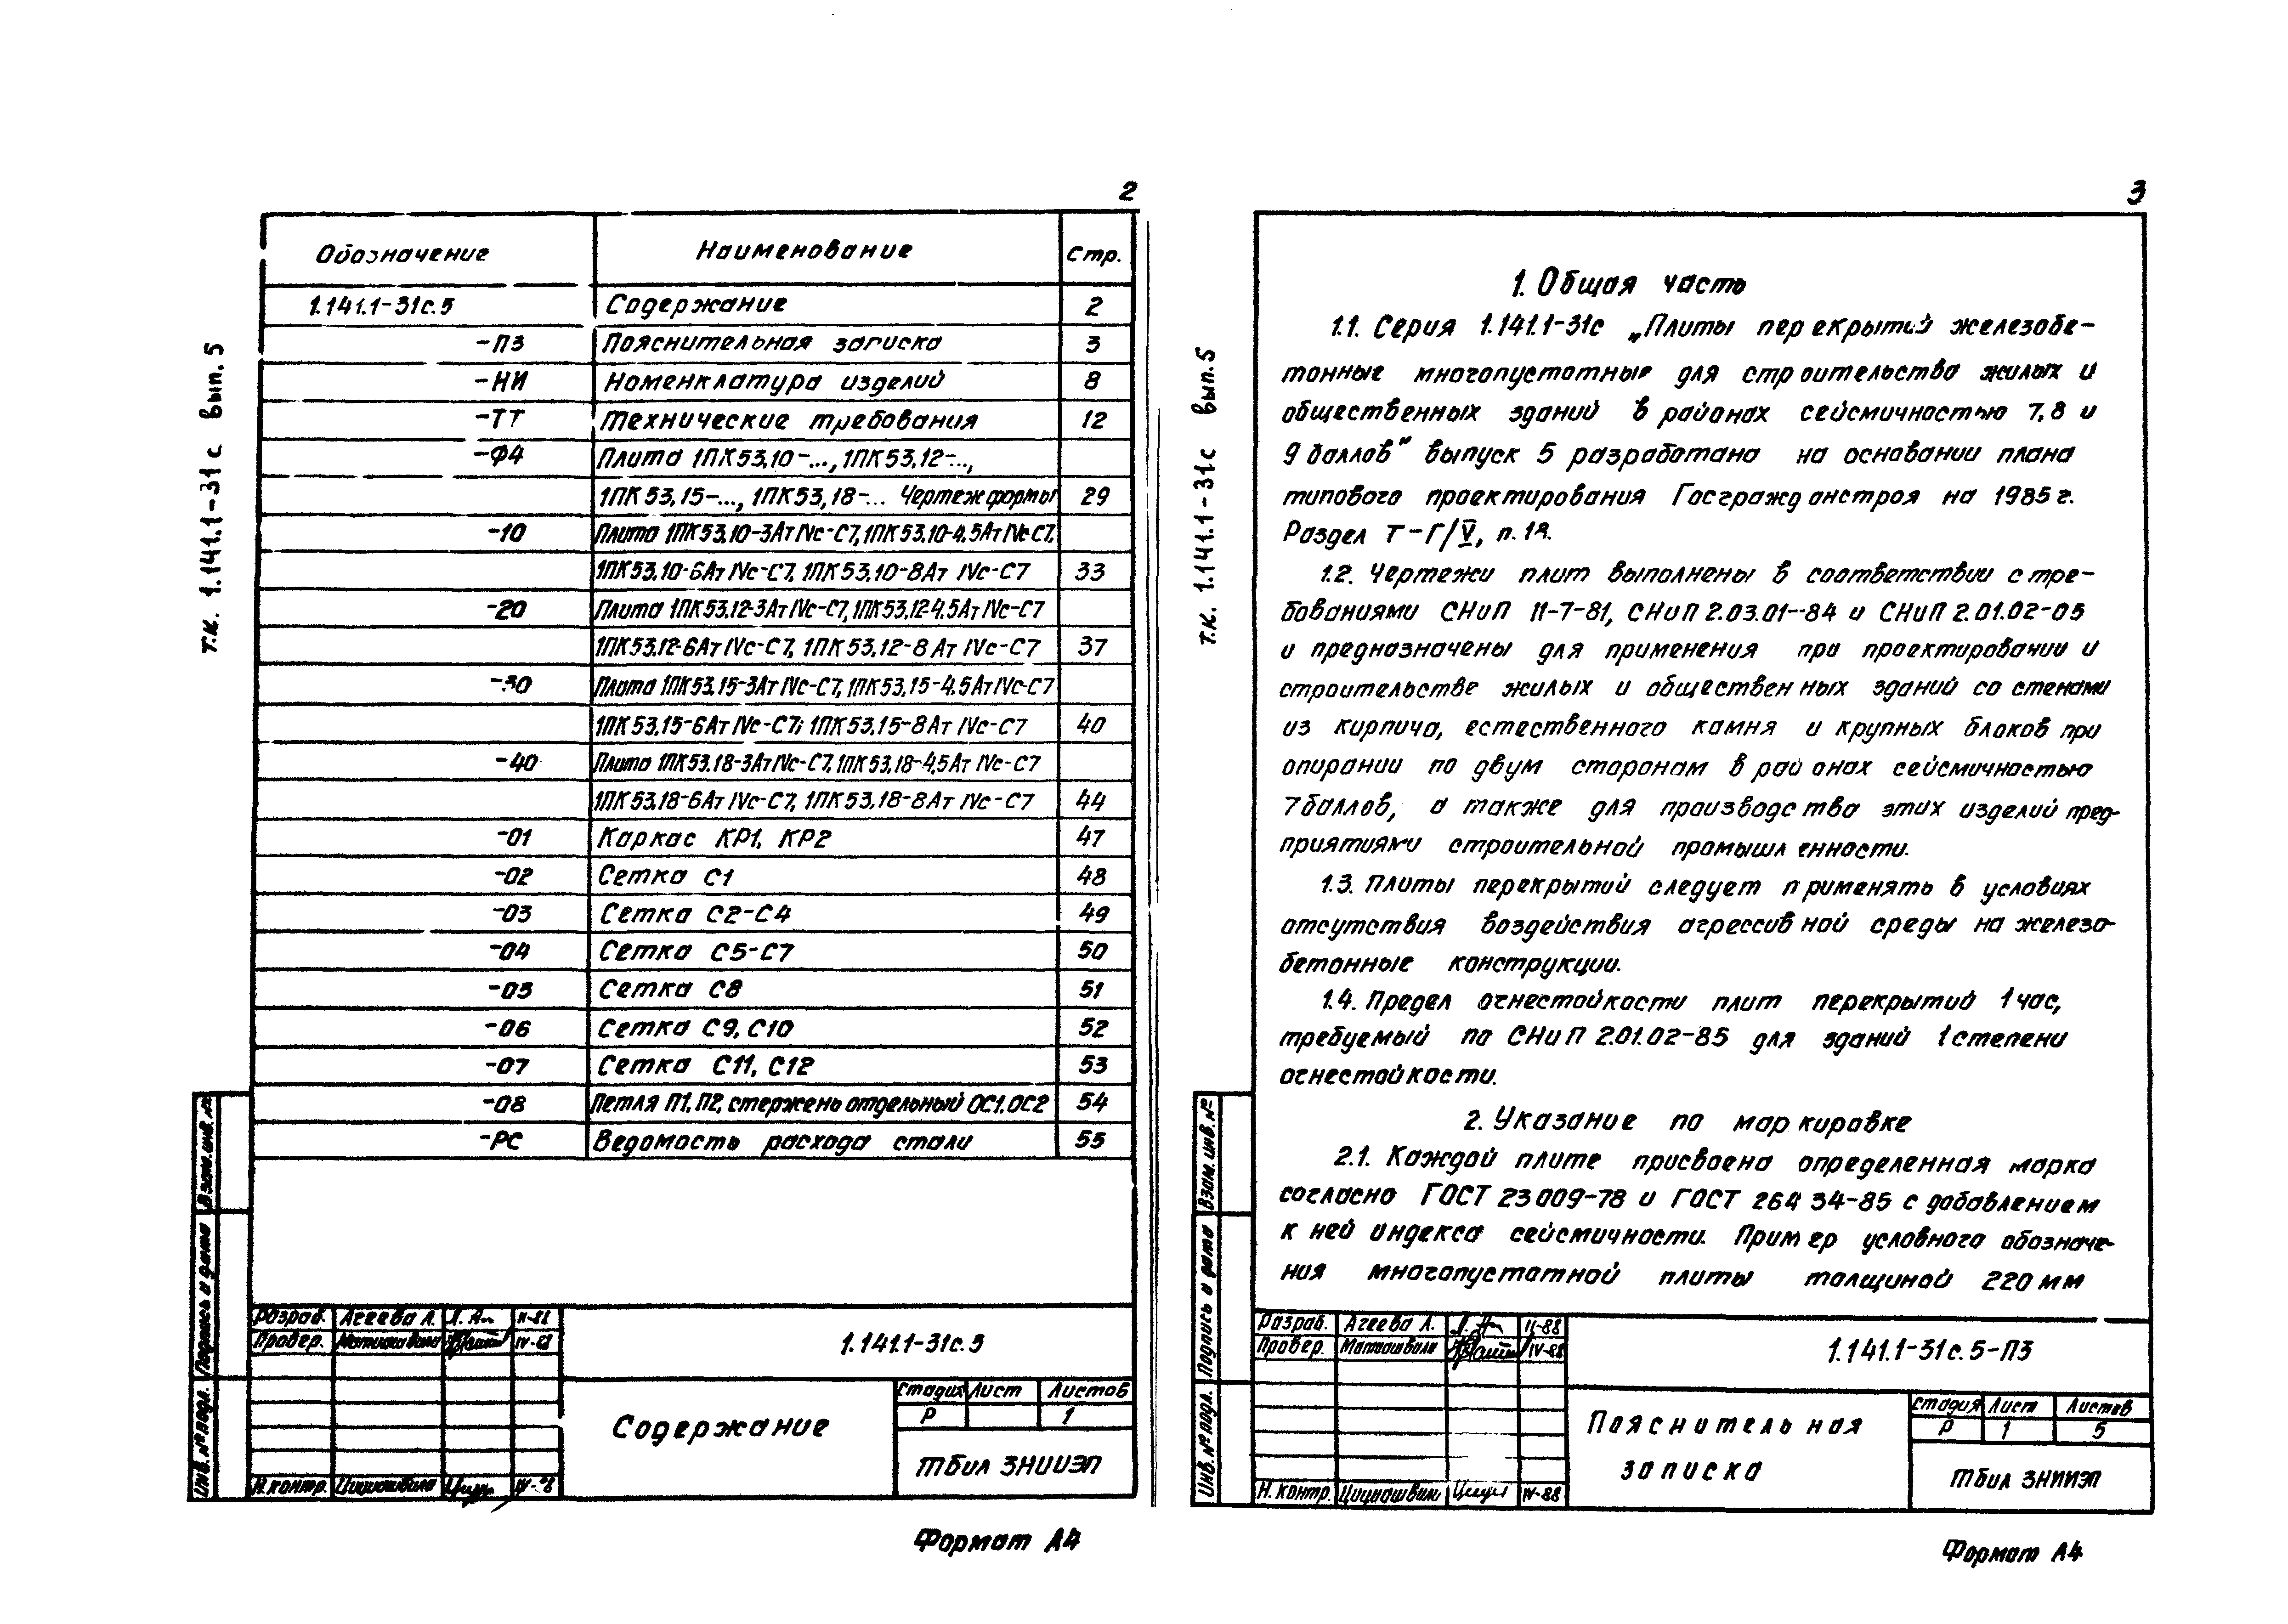 2
т.к. 1.141.1-31с вып. 5
Обозначение Наименование Стр.
1.141.1-31с.5 Содержание 2
-ПЗ Пояснительная записка 3
-НИ Номенклатура изделий 8
-ТТ Технические требования 12
-Ф4 Плита 1ПК53.10-..., 1ПК53.12-...,
1ПК53.15-..., 1ПК53.18-... Чертеж формы 29
-10 Плита 1ПК53.10-3АтIVс-С7, 1ПК53.10-4,5АтIVсС7,
1ПК53.10-6АтIVс-С7, 1ПК53.10-8АтIVс-С7 33
-20 Плита 1ПК53.12-3АтIVс-С7, 1ПК53.12-4,5АтIVс-С7
1ПК53.12-6АтIVс-С7, 1ПК53.12-8АтIVс-С7 37
-30 Плита 1ПК53.15-3АтIVс-С7, 1ПК53.15-4,5АтIVс-С7
1ПК53.15-6АтIVс-С7; 1ПК53.15-8АтIVс-С7 40
-40 Плита 1ПК53.18-3АтIVс-С7, 1ПК53.18-4,5АтIVс-С7
1ПК53.18-6АтIVс-С7, 1ПК53.18-8АтIVс-С7 44
-01 Каркас КР1, КР2 47
-02 Сетка С1 48
-03 Сетка С2-С4 49
-04 Сетка С5-С7 50
-05 Сетка С8 51
-06 Сетка С9, С10 52
-07 Сетка С11, С12 53
-08 Петля П1, П2, стержень отдельный ОС1, ОС2 54
-РС Ведомость расхода стали 55
Взам. инв. №
Подпись и дата
Инв. № подл.
Разраб. Агеева Л. II-88
Провер. IV-88
Н. контр. IV-88
1.141.1-31с.5
Содержание
Стадия Лист Листов
Р 1
ТбилЗНИИЭП
Формат А4
3
т.к. 1.141.1-31с вып. 5
1. Общая часть
1.1. Серия 1.141.1-31с „Плиты перекрытий железобе-
тонные многопустотные для строительства жилых и
общественных зданий в районах сейсмичностью 7,8 и
9 баллов" выпуск 5 разработана на основании плана
типового проектирования Госгражданстроя на 1985 г.
Раздел Т-Г/V, п.
1.2. Чертежи плит выполнены в соответствии с тре-
бованиями СНиП II-7-81, СНиП 2.03.01-84 и СНиП 2.01.02-05
и предназначены для применения при проектировании и
строительстве жилых и общественных зданий со стенами
из кирпича, естественного камня и крупных блоков при
опирании по двум сторонам в районах сейсмичностью
7 баллов, а также для производства этих изделий пред-
приятиями строительной промышленности.
1.3. Плиты перекрытий следует применять в условиях
отсутствия воздействия агрессивной среды на железо-
бетонные конструкции.
1.4. Предел огнестойкости плит перекрытий 1 час,
требуемый по СНиП 2.01.02-85 для зданий 1 степени
огнестойкости.
2. Указание по маркировке
2.1. Каждой плите присвоена определенная марка
согласно ГОСТ 23009-78 и ГОСТ 26434-85 с добавлением
к ней индекса сейсмичности. Пример условного обозначе-
ния многопустотной плиты толщиной 220 мм
Взам. инв. №
Подпись и дата
Инв. № подл.
Разраб. Агеева Л. II-88
Провер. IV-88
Н. контр. IV-88
1.141.1-31с.5-ПЗ
Пояснительная
записка
Стадия Лист Листов
Р 1 5
ТбилЗНИИЭП
Формат А4